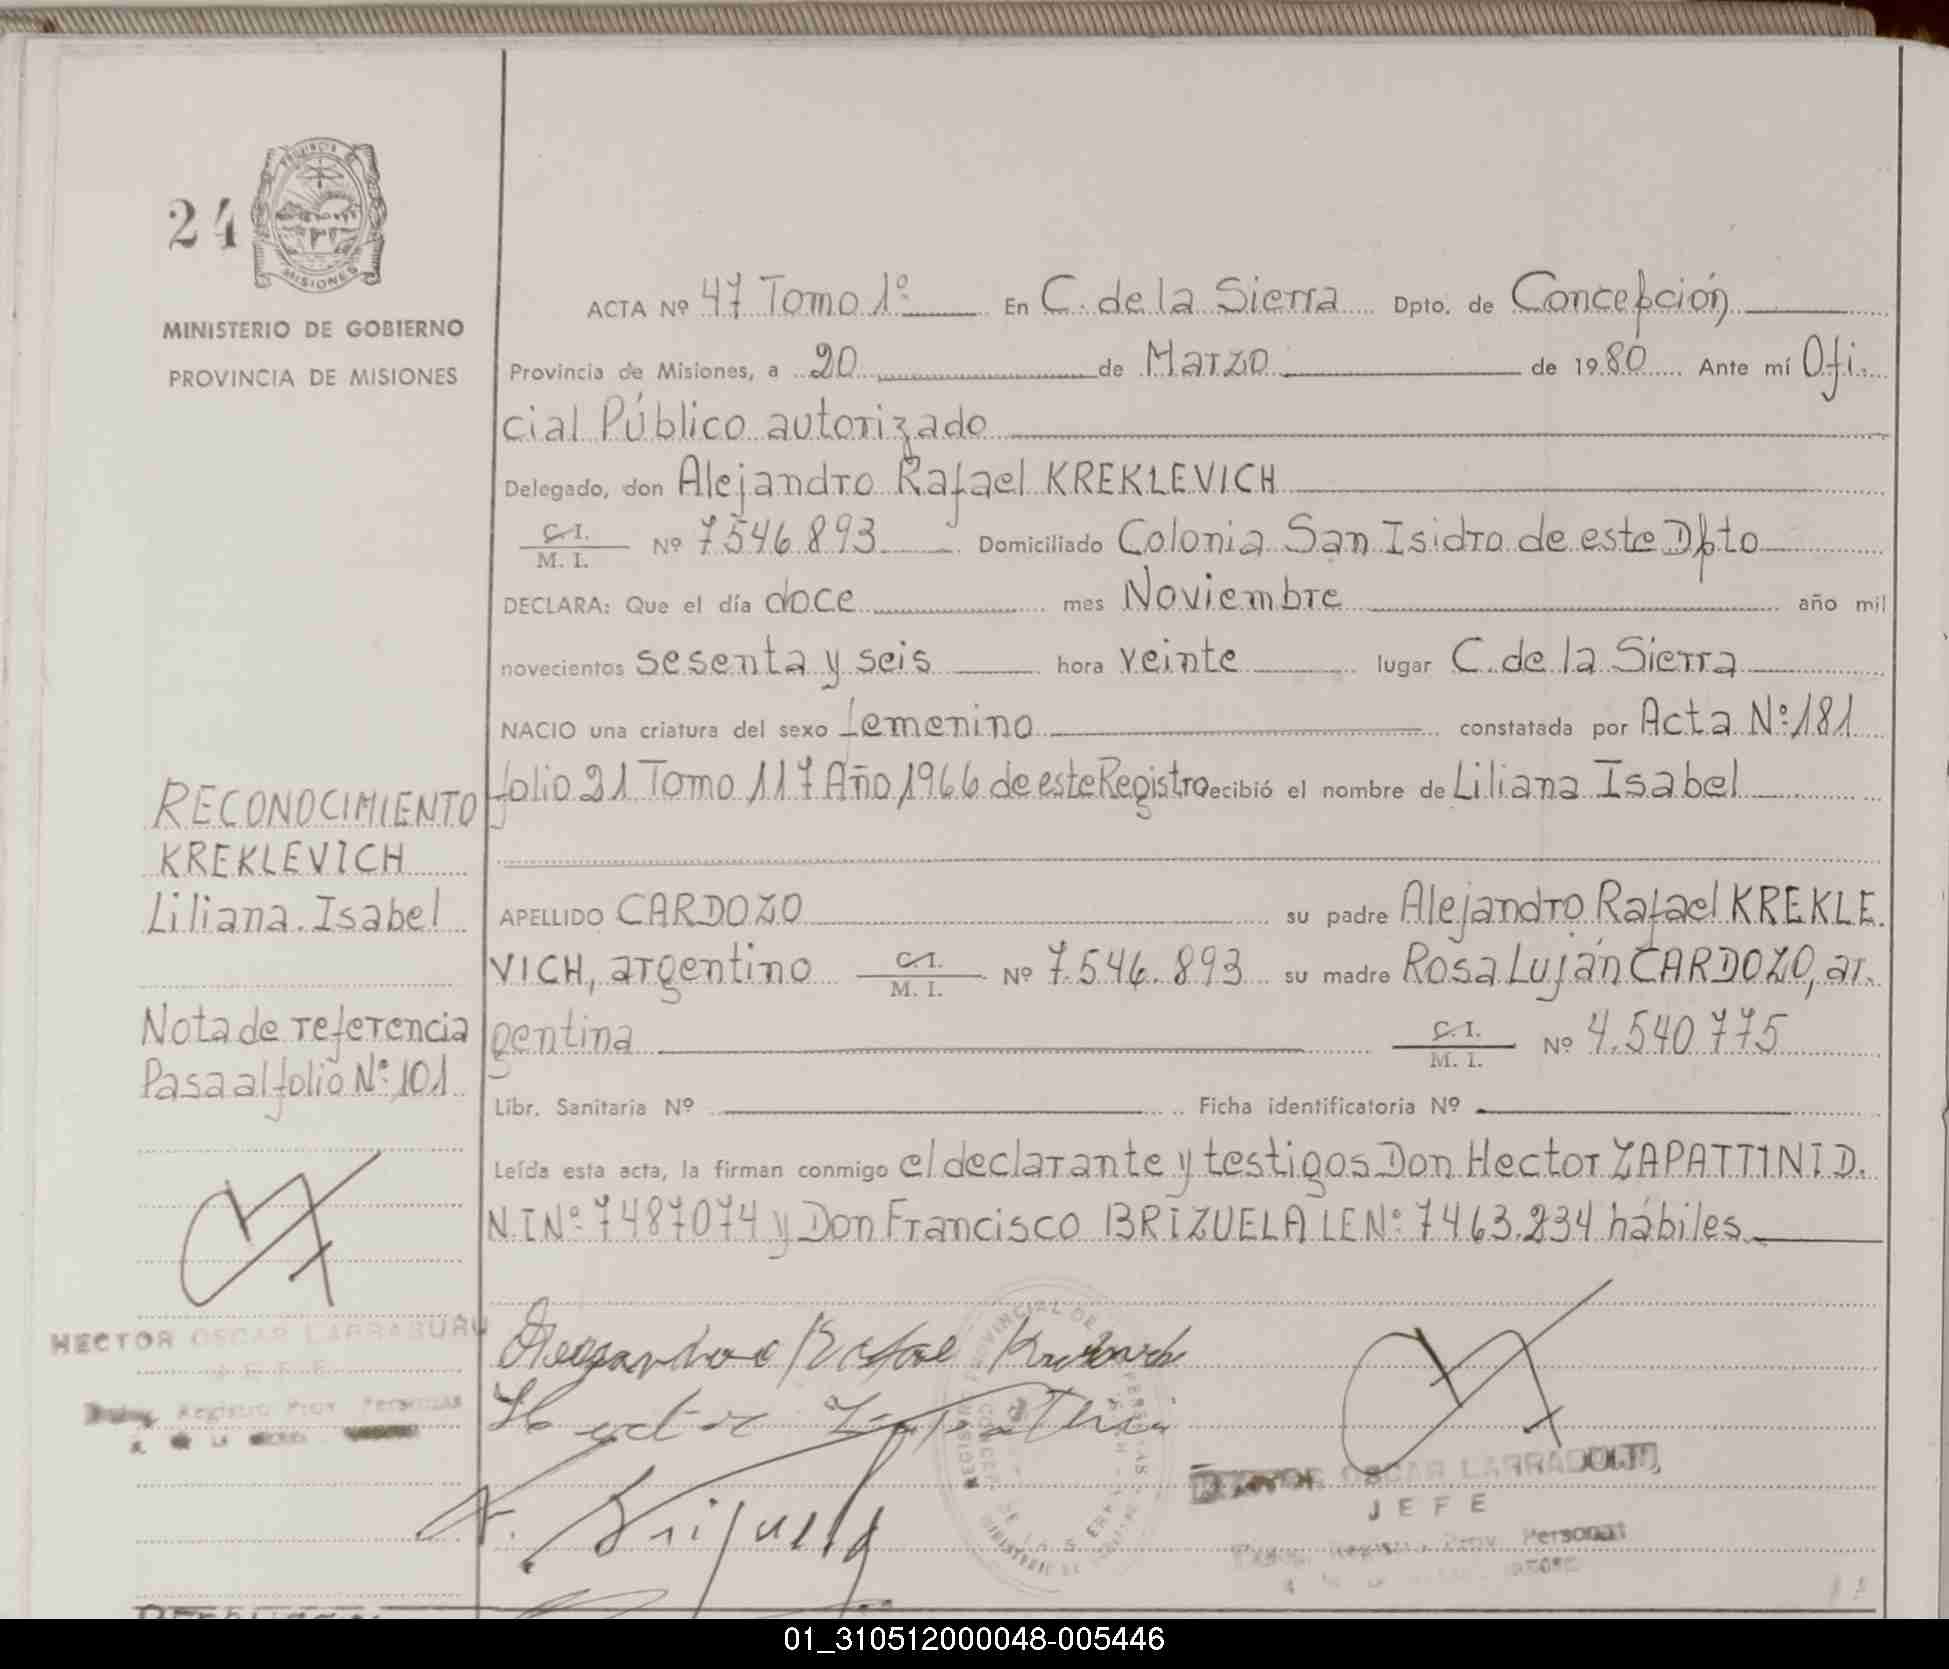 24
PROVINCIA DE
MISIONES
MINISTERIO DE GOBIERNO
PROVINCIA DE MISIONES
ACTA Nº 47 Tomo 1º En C. de la Sierra Dpto. de Concepción
Provincia de Misiones, a 20 de Marzo de 1980 Ante mí Ofi.
cial Público autorizado
Delegado, don Alejandro Rafael KREKLEVICH
C.I. / M. I. Nº 7.546.893 Domiciliado Colonia San Isidro de este Dpto
DECLARA: Que el día doce mes Noviembre año mil
novecientos sesenta y seis hora veinte lugar C. de la Sierra
NACIO una criatura del sexo femenino constatada por Acta Nº 181
folio 21 Tomo 117 Año 1966 de este Registro ecibió el nombre de Liliana Isabel
APELLIDO CARDOZO su padre Alejandro Rafael KREKLE.
VICH, argentino C.I. / M. I. Nº 7.546.893 su madre Rosa Luján CARDOZO, ar.
gentina C.I. / M. I. Nº 4.540.775
Libr. Sanitaria Nº Ficha identificatoria Nº
Leída esta acta, la firman conmigo el declarante y testigos Don Hector ZAPATTINI D.
N.I Nº 7487074 y Don Francisco BRIZUELA LE Nº 7463.234 hábiles
RECONOCIMIENTO
KREKLEVICH
Liliana Isabel
Nota de referencia
Pasa al folio Nº 101
HECTOR OSCAR LARRABURU
JEFE
Registro Prov Personas
OSCAR
JEFE
Prov. Personas
01_310512000048-005446